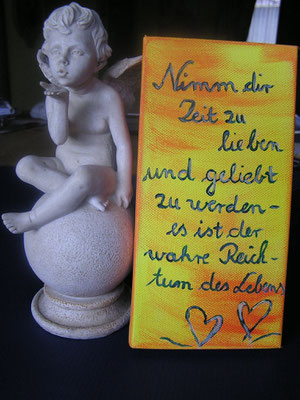 Nimm dir
Zeit zu
lieben
und geliebt
zu werden-
es ist der
wahre Reich-
tum des Lebens